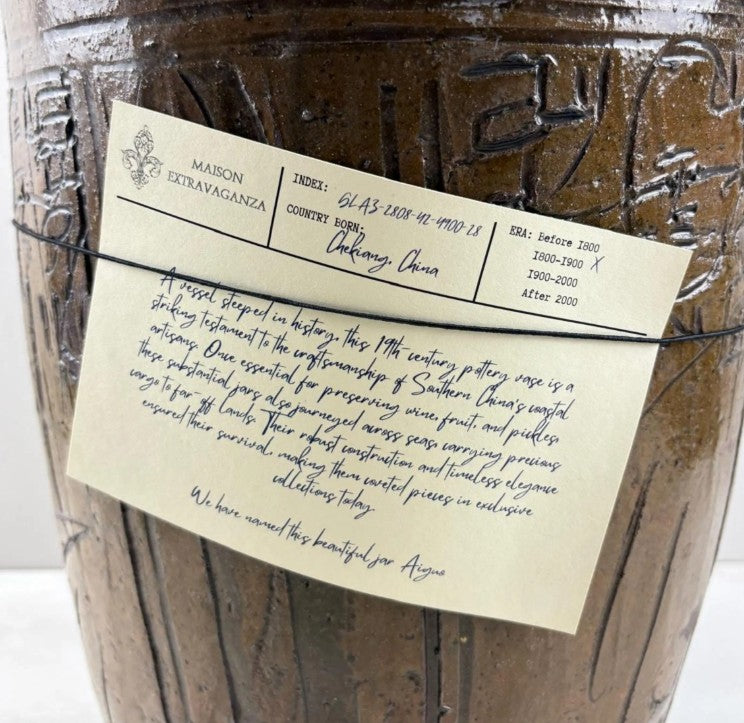 MAISON
EXTRAVAGANZA
INDEX:
GLA3-2808-42-4900-28
COUNTRY BORN:
Chekiang, China
ERA: Before 1800
1800-1900 X
1900-2000
After 2000
A vessel steeped in history, this 19th century pottery vase is a
striking testament to the craftsmanship of Southern China's coastal
artisans. Once essential for preserving wine, fruit, and pickles,
these substantial jars also journeyed across seas, carrying precious
cargo to far-off lands. Their robust construction and timeless elegance
ensured their survival, making them coveted pieces in exclusive
collections today.
We have named this beautiful jar Aiguo